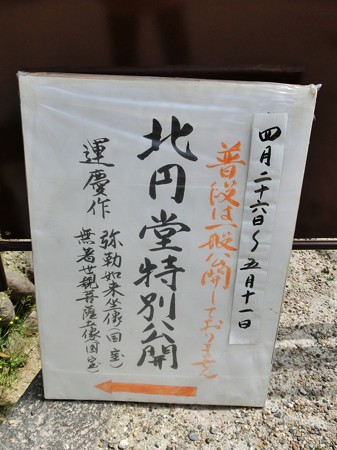 四月二十六日～五月十一日
普段は一般公開しておりません
北円堂特別公開
運慶作
弥勒如来坐像(国宝)
無着世親菩薩立像(国宝)